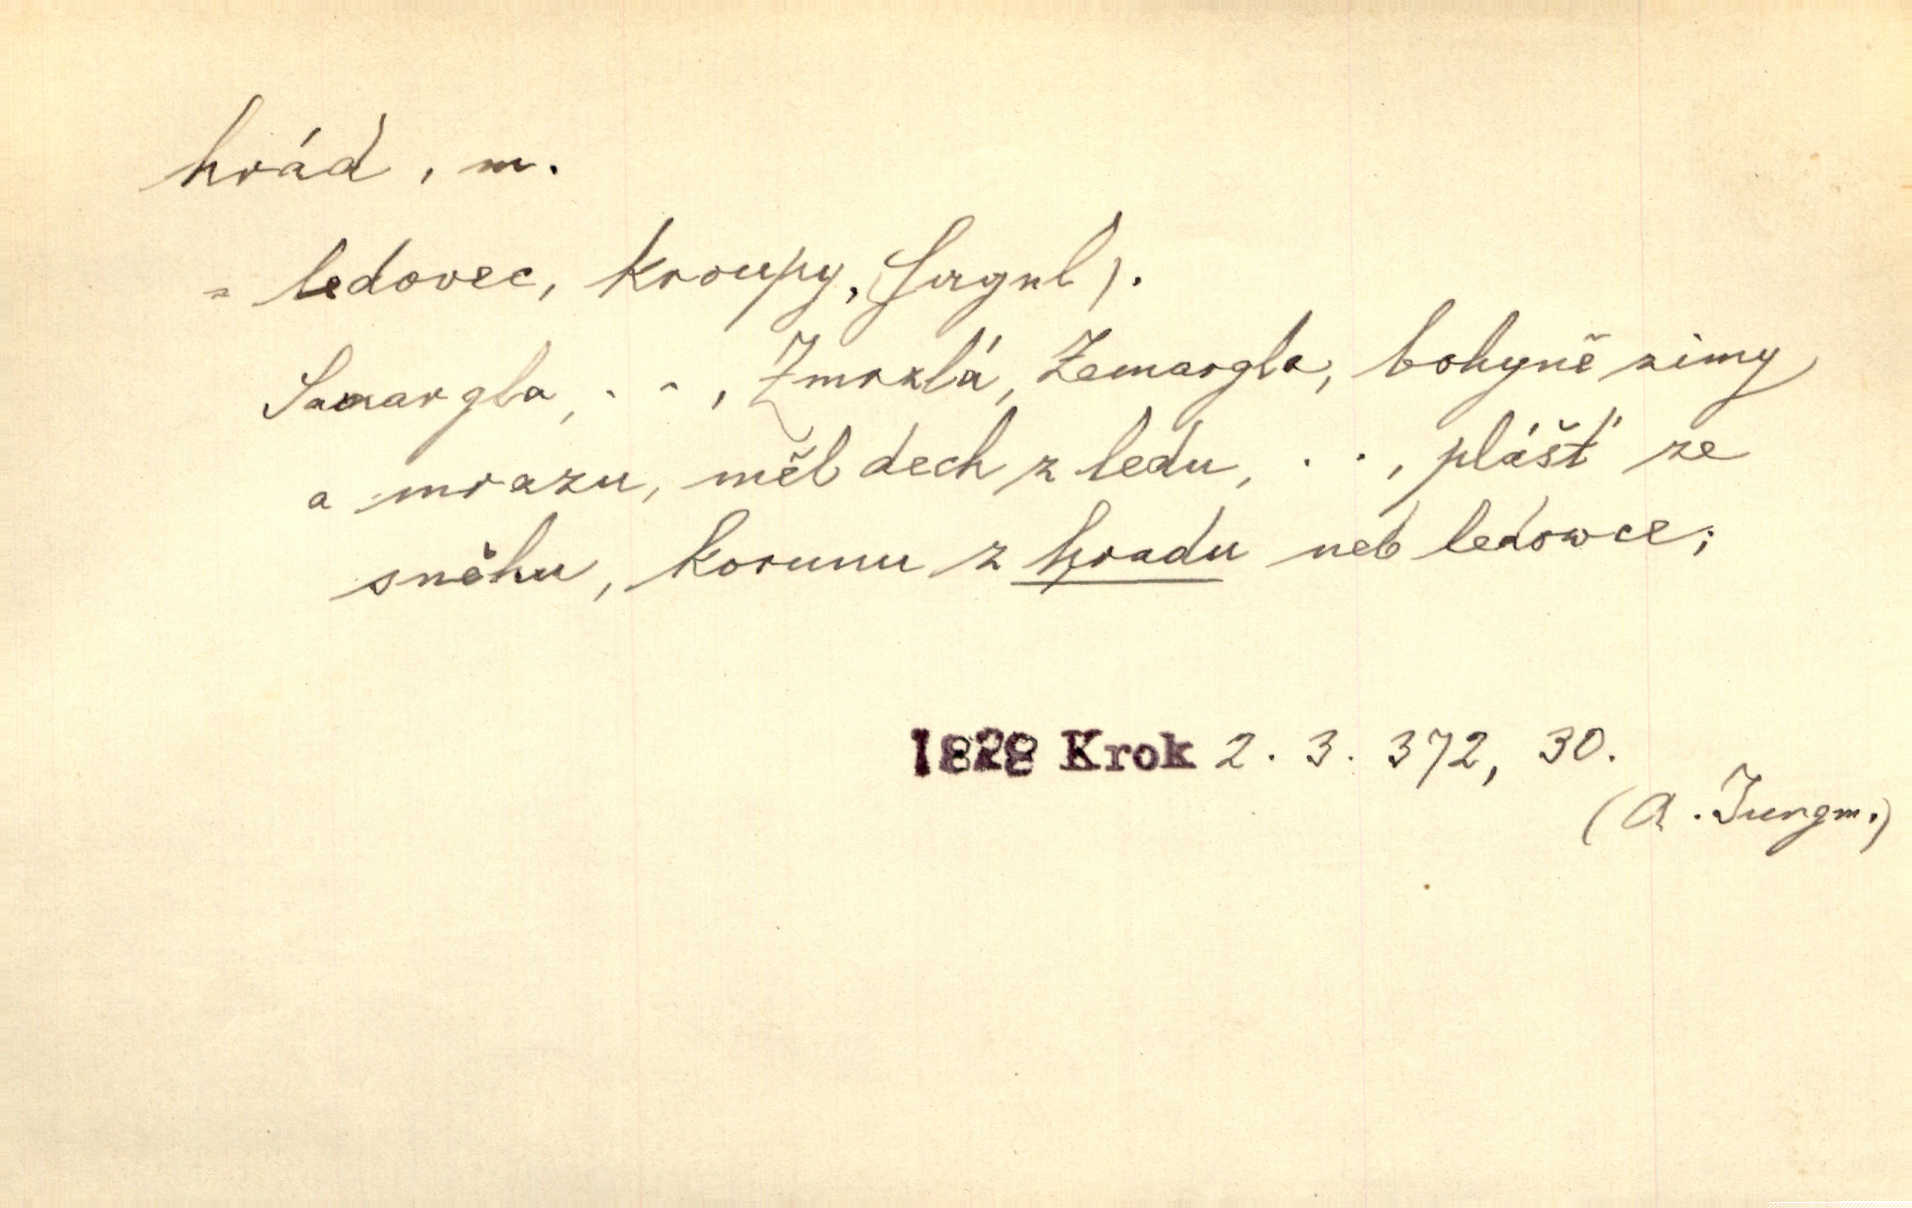 hrád, m.
= ledovec, kroupy, (Jungml).
Samargla, . . , Zmrzlá, Zemargla, bohyně zimy
a mrazu, měl dech z ledu, . . , plášť ze
sněhu, korunu z hradu neb ledowce;
1828 Krok 2. 3. 372, 30.
(A. Jungm.)